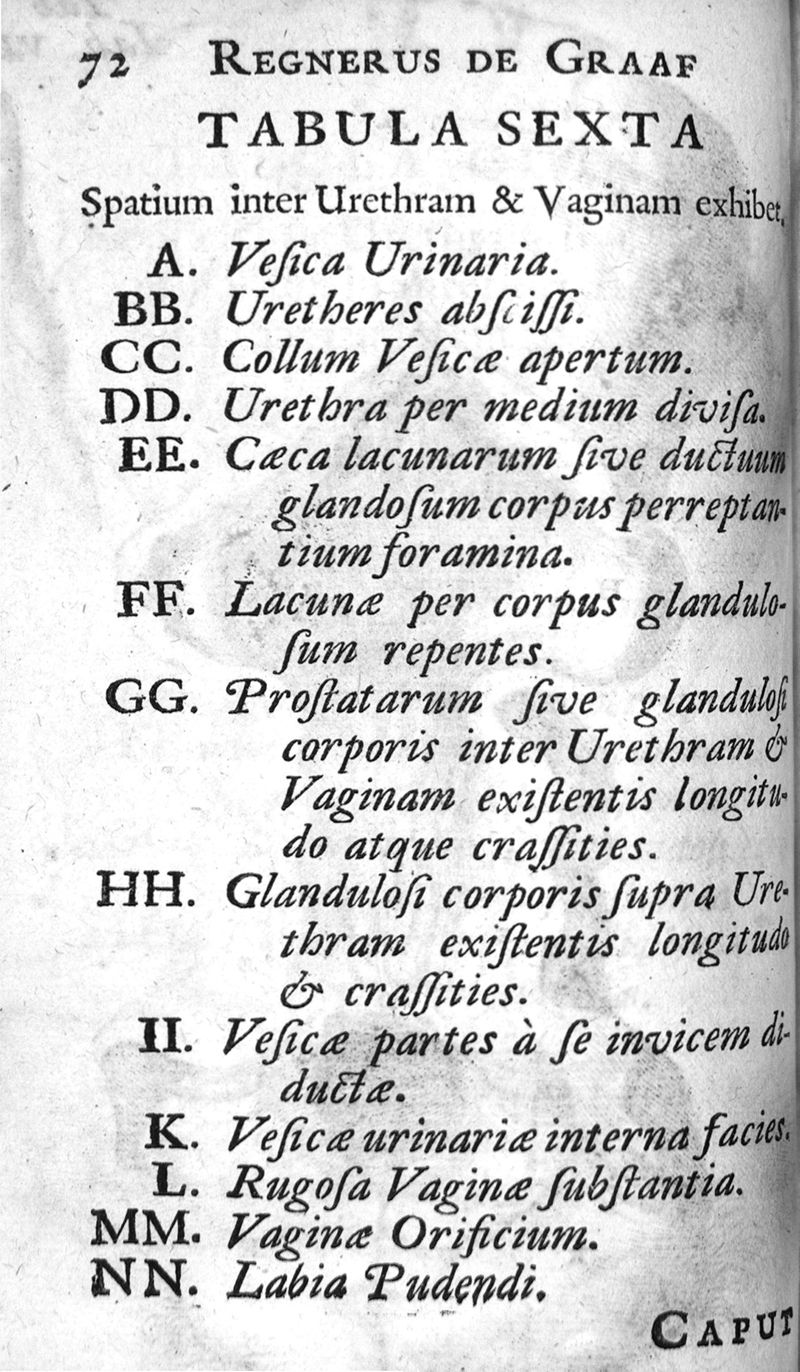 72 REGNERUS DE GRAAF
TABULA SEXTA
Spatium inter Urethram & Vaginam exhibet.
A. Veſica Urinaria.
BB. Uretheres abſciſſi.
CC. Collum Veſicæ apertum.
DD. Urethra per medium diviſa.
EE. Cæca lacunarum ſive ductuum
glandoſum corpus perreptan-
tium foramina.
FF. Lacunæ per corpus glandulo-
ſum repentes.
GG. Proſtatarum ſive glanduloſi
corporis inter Urethram &
Vaginam exiſtentis longitu-
do atque craſſities.
HH. Glanduloſi corporis ſupra Ure-
thram exiſtentis longitudo
& craſſities.
II. Veſicæ partes à ſe invicem di-
ductæ.
K. Veſicæ urinariæ interna facies.
L. Rugoſa Vaginæ ſubſtantia.
MM. Vaginæ Orificium.
NN. Labia Pudendi.
CAPUT